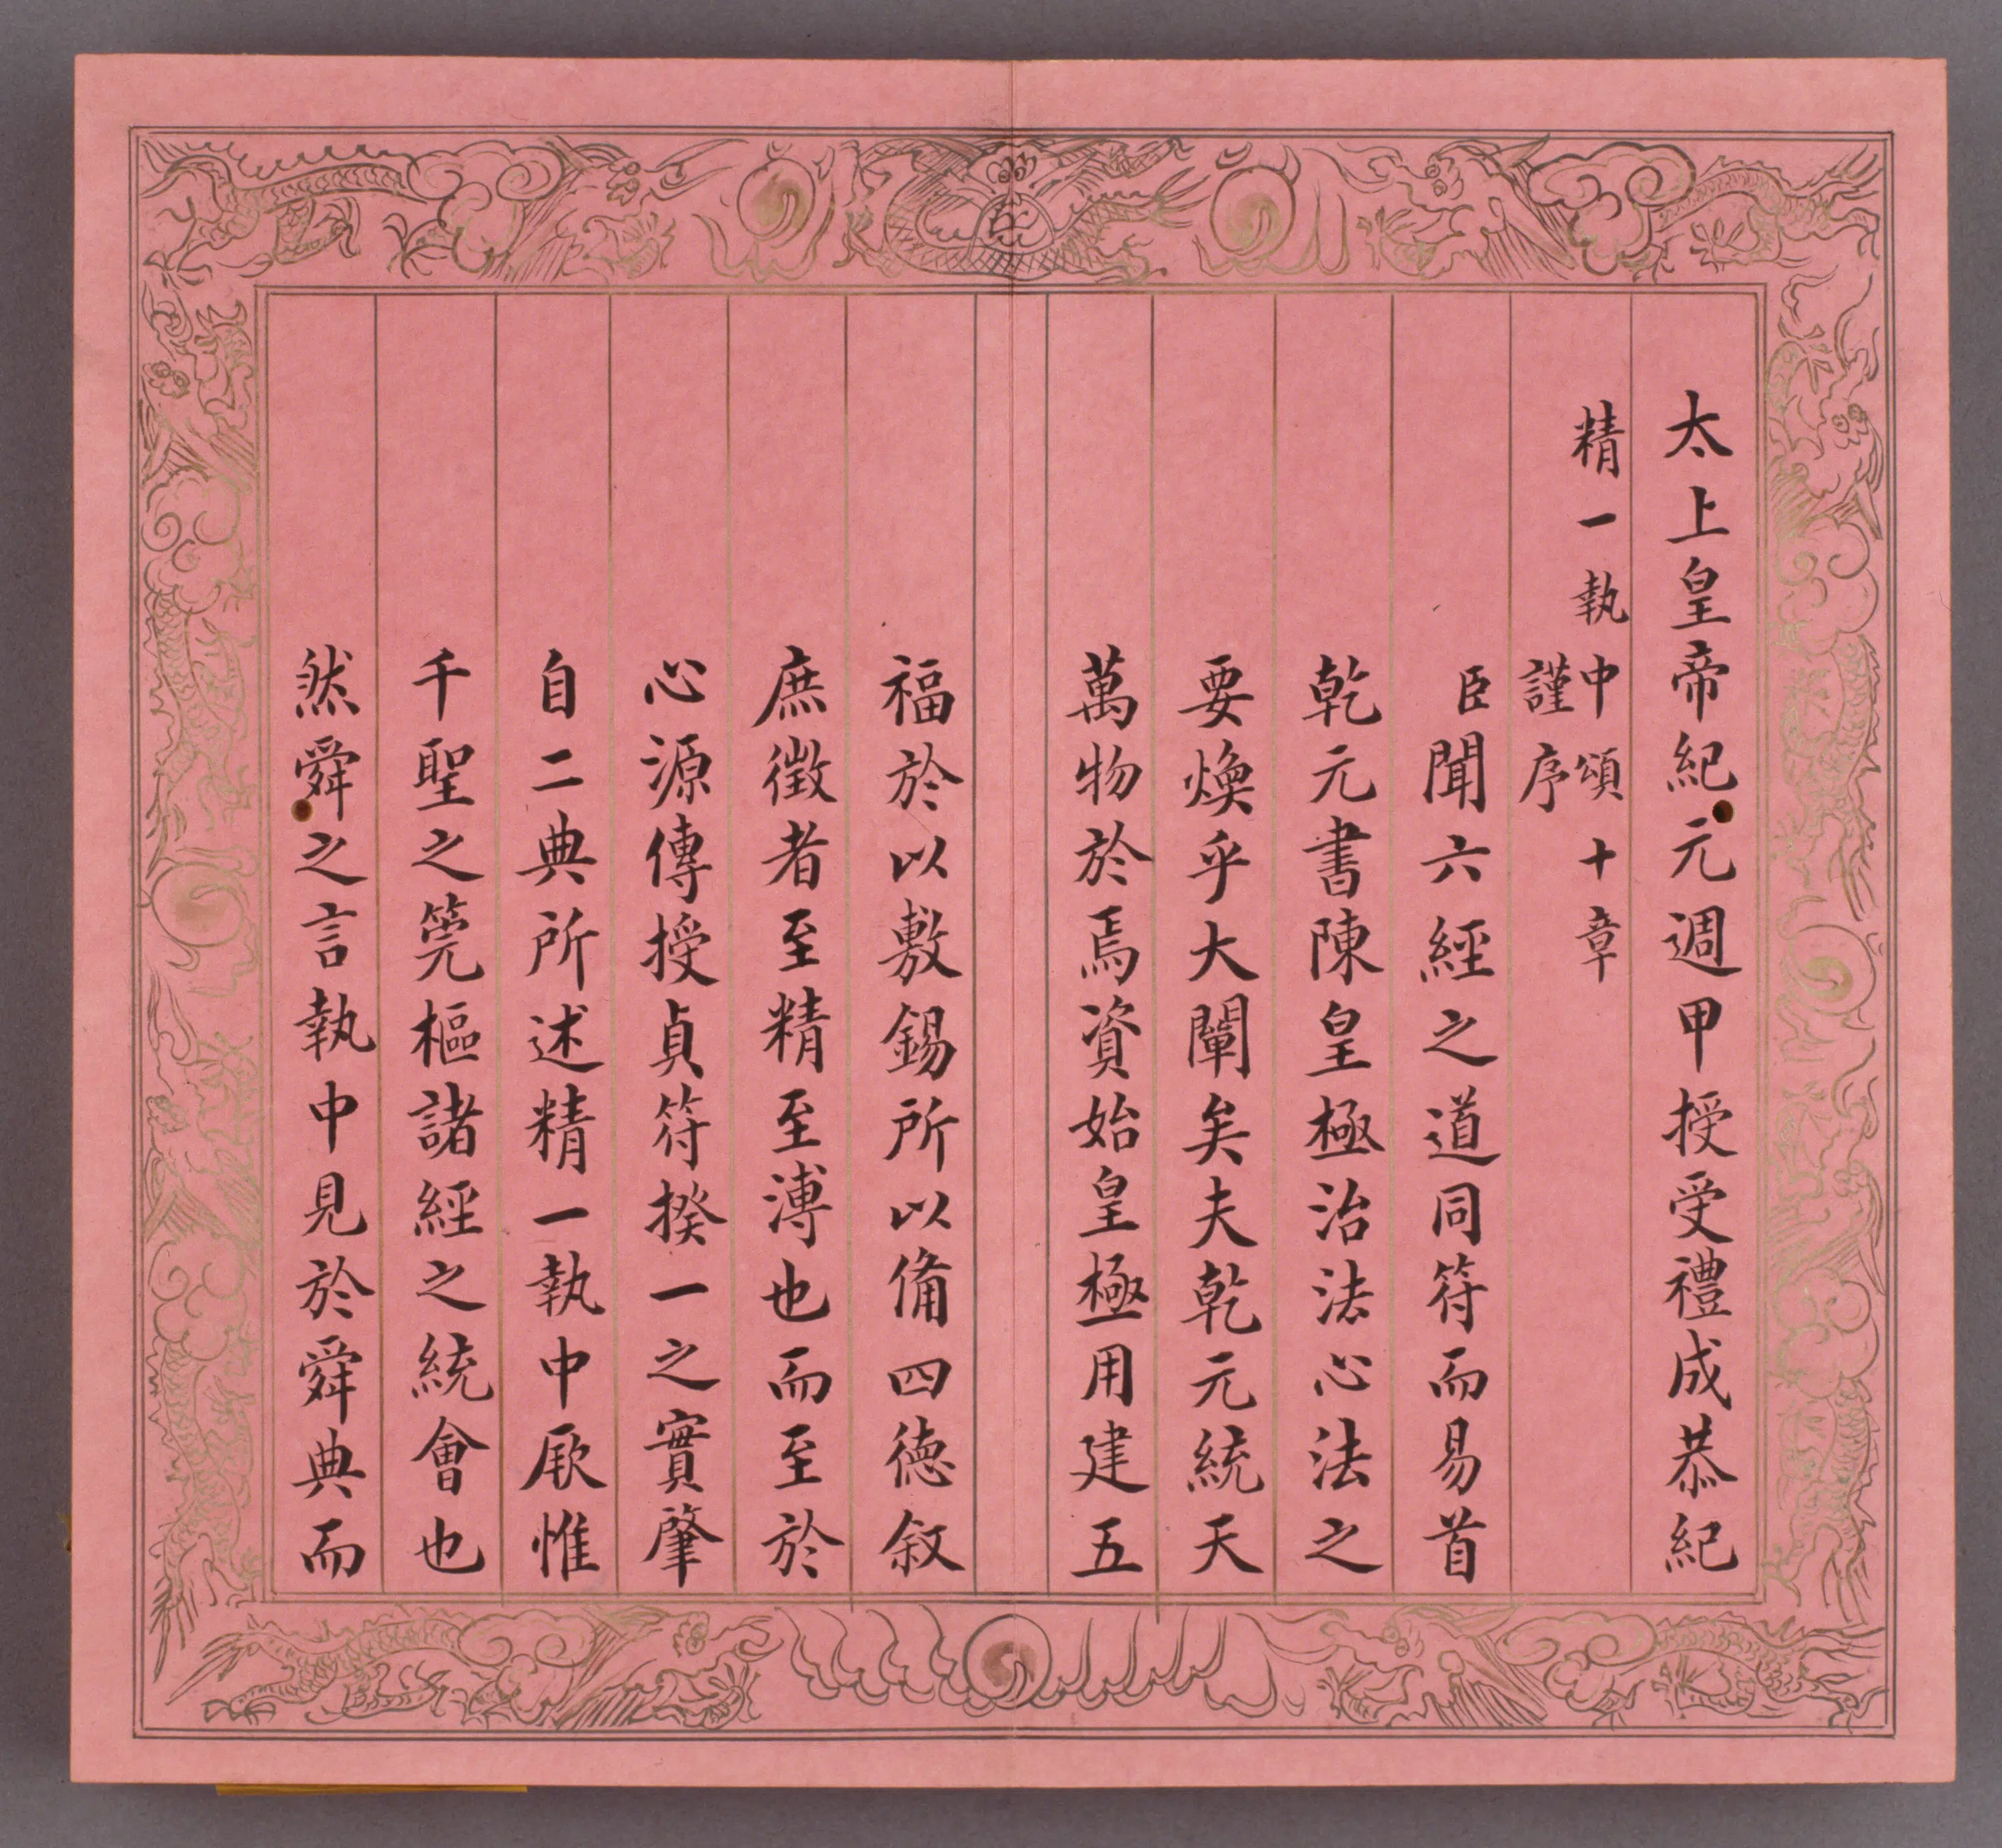 太上皇帝紀元週甲授受禮成恭紀
精一執中頌十章
謹序
臣聞六經之道同符而易首
乾元書陳皇極治法心法之
要煥乎大闡矣夫乾元統天
萬物於焉資始皇極用建五
福於以敷錫所以備四德叙
庶徵者至精至溥也而至於
心源傳授貞符揆一之實肇
自二典所述精一執中厥惟
千聖之筦樞諸經之統會也
然舜之言執中見於舜典而